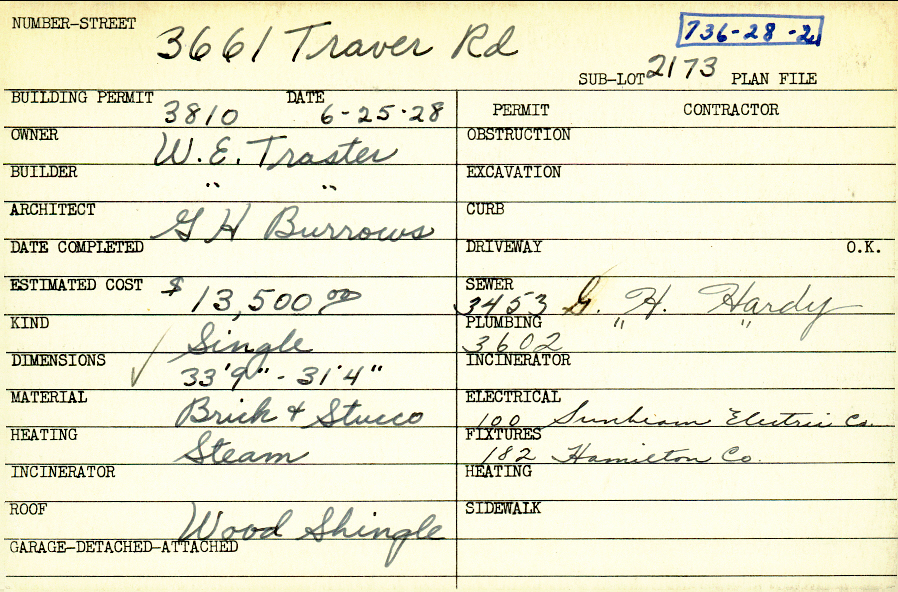 NUMBER-STREET 3661 Traver Rd 736-28-2
SUB-LOT 2173 PLAN FILE
BUILDING PERMIT 3810 DATE 6-25-28
OWNER W. E. Traster
BUILDER " "
ARCHITECT G H Burrows
DATE COMPLETED
ESTIMATED COST $ 13,500.00
KIND Single
DIMENSIONS ✓ 33'9" - 31'4"
MATERIAL Brick & Stucco
HEATING Steam
INCINERATOR
ROOF Wood Shingle
GARAGE-DETACHED-ATTACHED
PERMIT CONTRACTOR
OBSTRUCTION
EXCAVATION
CURB
DRIVEWAY O.K.
SEWER 3453 G. H. Hardy
PLUMBING 3602 " "
INCINERATOR
ELECTRICAL 100 Sunbeam Electric Co.
FIXTURES 182 Hamilton Co.
HEATING
SIDEWALK